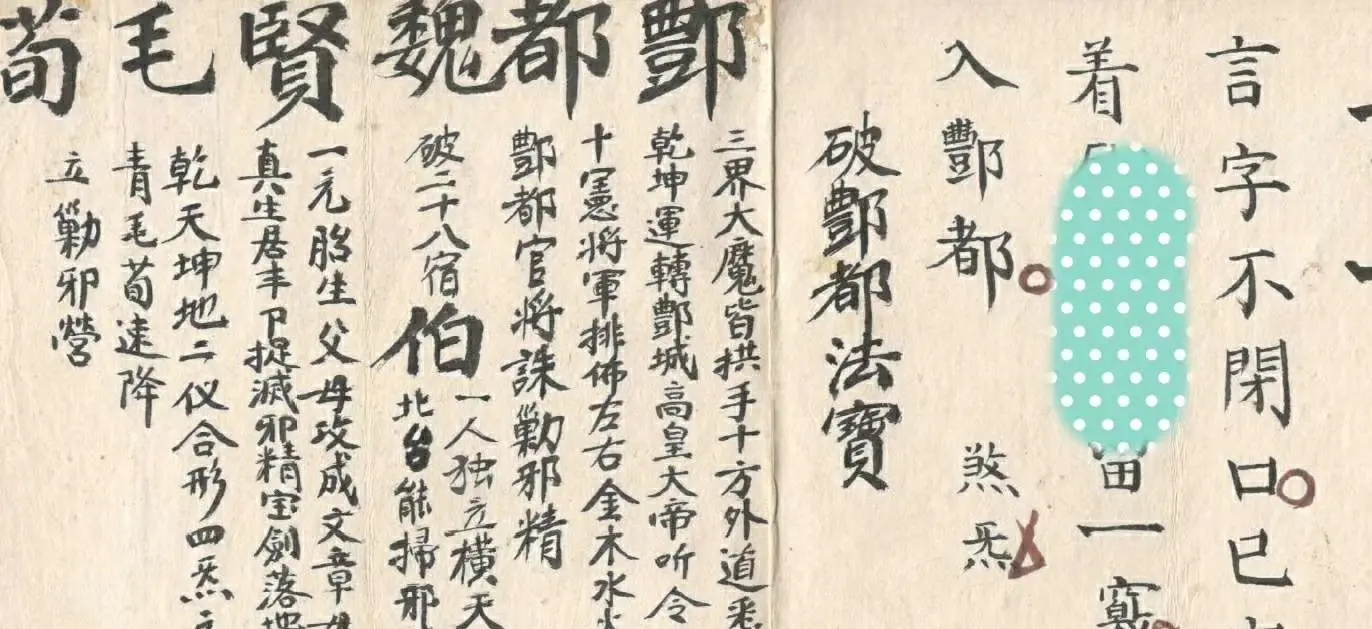 言字不閉口已
着
一竅
入酆都 煞炁
破酆都法寶
酆
三界大魔皆拱手十方外道悉
乾坤運轉酆城高皇大帝听令
都
十憲将軍排佈左右金木水火
酆都官将誅勦邪精
魏
破二十八宿
伯
一人独立横天
北台能掃邪
賢
一元胎生父母攻成文章
真生居丰卩捉滅邪精宝劍落地
毛
乾天坤地二仪合形四炁
青毛荀速降
荀
立勦邪營